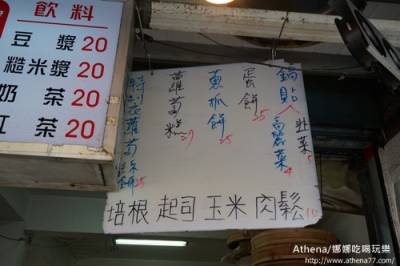 飲料
豆漿 20
糙米漿 20
奶茶 20
紅茶 20
鍋貼
韭菜 5
高麗菜 4
蛋餅 25
蔥抓餅 25
蘿蔔糕 20
特製蘿蔔絲餅 25
培根 起司 玉米 肉鬆 10
Athena/娜娜吃喝玩樂
http://www.athena77.com/